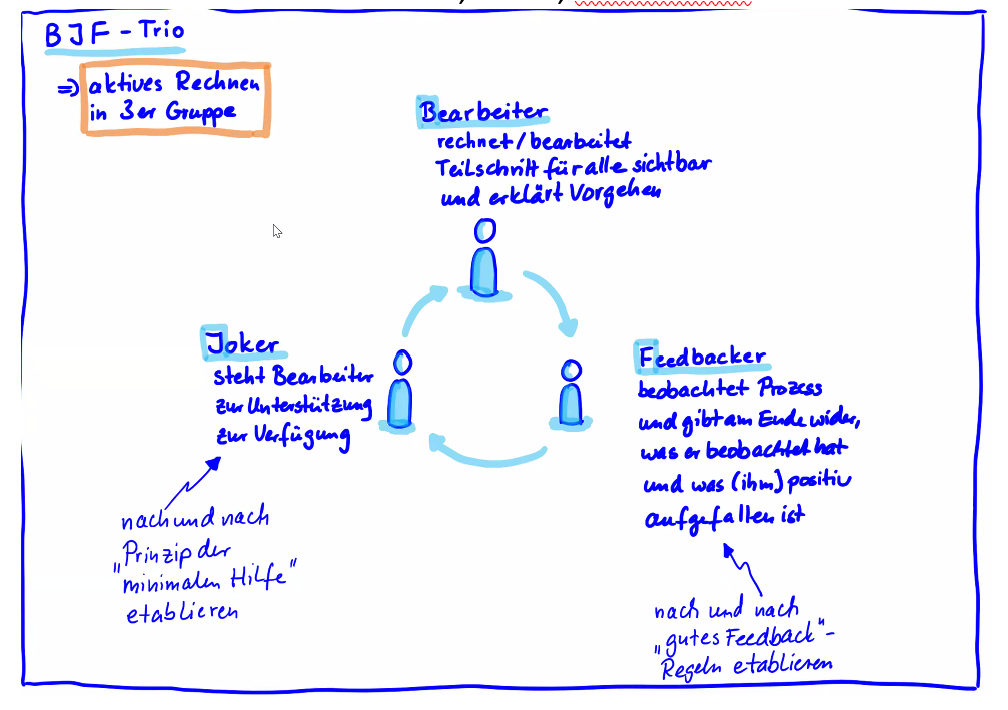 BJF-Trio
⇒ aktives Rechnen
in 3er Gruppe
Bearbeiter
rechnet/bearbeitet
Teilschritt für alle sichtbar
und erklärt Vorgehen
Joker
steht Bearbeiter
zur Unterstützung
zur Verfügung
nach und nach
„Prinzip der
minimalen Hilfe"
etablieren
Feedbacker
beobachtet Prozess
und gibt am Ende wider,
was er beobachtet hat
und was (ihm) positiv
aufgefallen ist
nach und nach
„gutes Feedback"-
Regeln etablieren